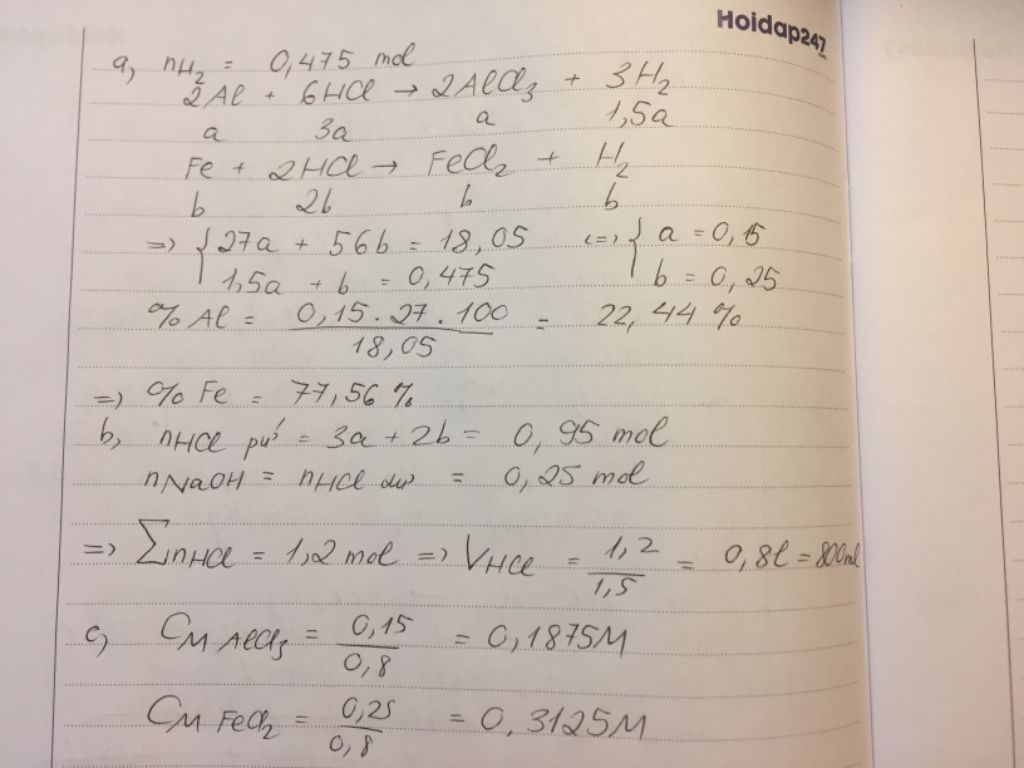 Hoidap247
a, nH₂ = 0,475 mol
2Al + 6HCl → 2AlCl₃ + 3H₂
a 3a a 1,5a
Fe + 2HCl → FeCl₂ + H₂
b 2b b b
=> { 27a + 56b = 18,05 <=> { a = 0,15
1,5a + b = 0,475 b = 0,25
% Al = 0,15 . 27 . 100 = 22,44 %
18,05
=> % Fe = 77,56 %
b, nHCl pứ = 3a + 2b = 0,95 mol
nNaOH = nHCl dư = 0,25 mol
=> ∑nHCl = 1,2 mol => VHCl = 1,2 / 1,5 = 0,8l = 800ml
c, CM AlCl₃ = 0,15 / 0,8 = 0,1875M
CM FeCl₂ = 0,25 / 0,8 = 0,3125M